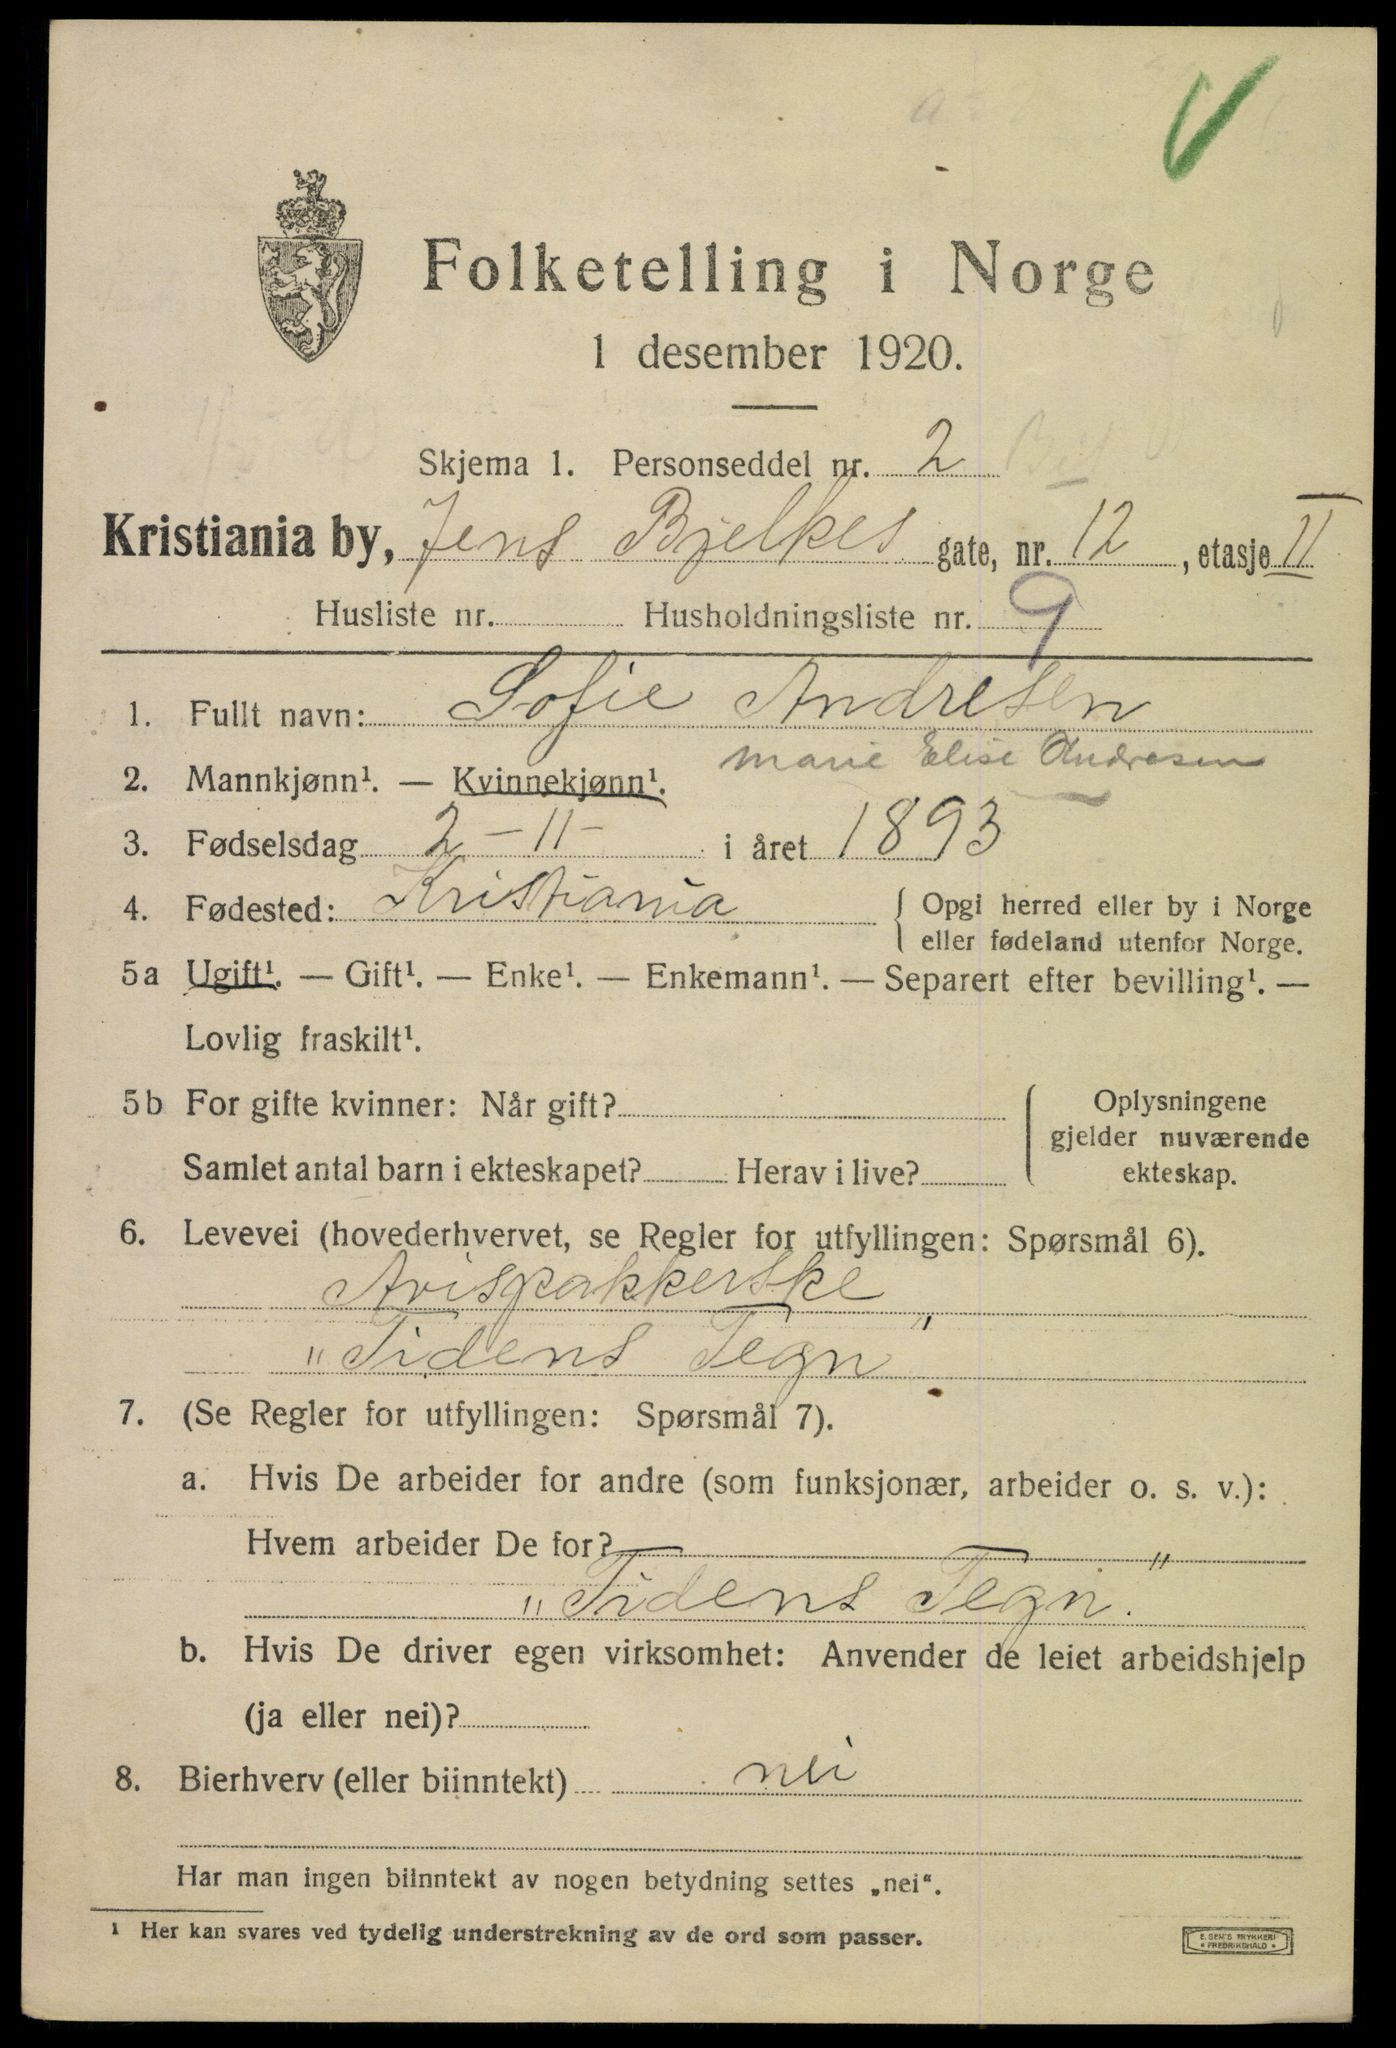 Folketelling i Norge
1 desember 1920.
Skjema 1. Personseddel nr. 2
Kristiania by, Jens Bjelkes gate, nr. 12, etasje II
Husliste nr. Husholdningsliste nr. 9
1. Fullt navn: Sofie Andresen
Marie Elise Andresen
2. Mannkjønn¹. — Kvinnekjønn¹.
3. Fødselsdag 2 - 11 - i året 1893
4. Fødested: Kristiania { Opgi herred eller by i Norge
eller fødeland utenfor Norge.
5a Ugift¹. — Gift¹. — Enke¹. — Enkemann¹. — Separert efter bevilling¹. —
Lovlig fraskilt¹.
5b For gifte kvinner: Når gift? { Oplysningene
gjelder nuværende
Samlet antal barn i ekteskapet? Herav i live? ekteskap.
6. Levevei (hovederhvervet, se Regler for utfyllingen: Spørsmål 6).
Avispakkerske
„Tidens Tegn"
7. (Se Regler for utfyllingen: Spørsmål 7).
a. Hvis De arbeider for andre (som funksjonær, arbeider o. s. v.):
Hvem arbeider De for?
„Tidens Tegn."
b. Hvis De driver egen virksomhet: Anvender de leiet arbeidshjelp
(ja eller nei)?
8. Bierhverv (eller biinntekt) nei
Har man ingen biinntekt av nogen betydning settes „nei".
¹ Her kan svares ved tydelig understrekning av de ord som passer.
E. SEM'S TRYKKERI
• FREDRIKSHALD •